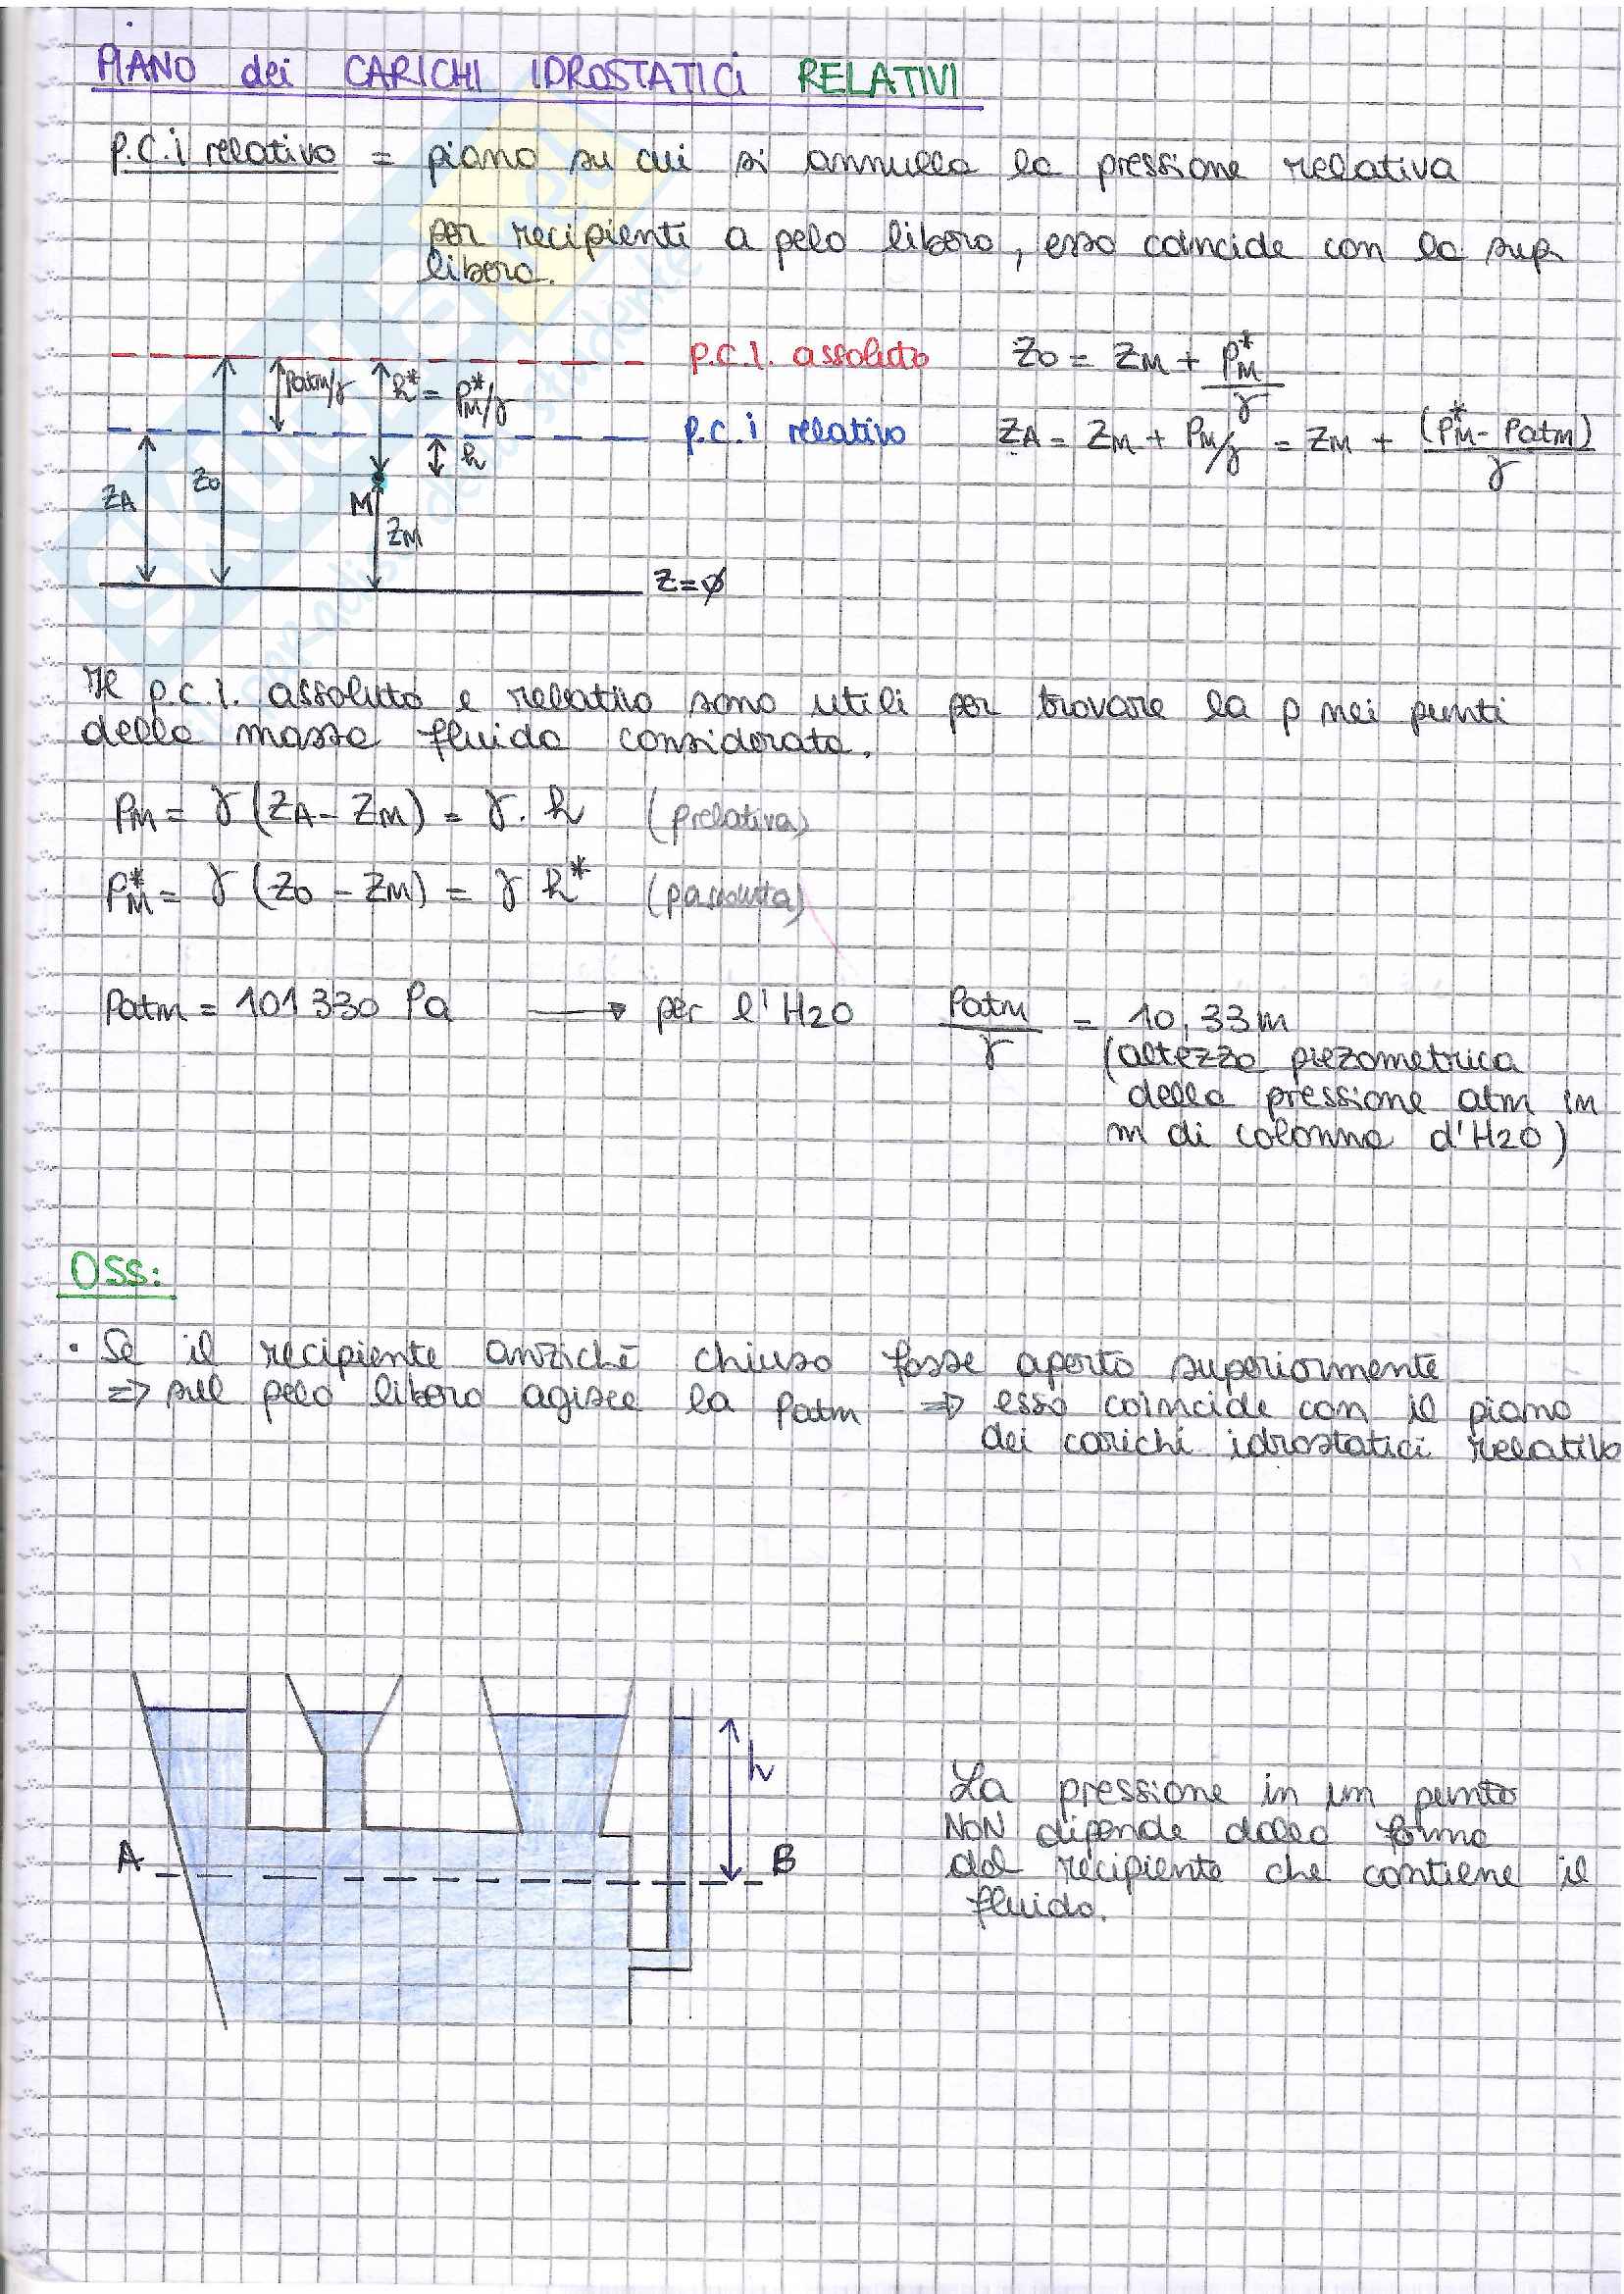 PIANO dei CARICHI IDROSTATICI RELATIVI
p.c.i relativo = piano su cui si annulla la pressione relativa
per recipienti a pelo libero, esso coincide con la sup
libera.
p.c.i. assoluto Z0 = ZM + P*M/γ
Patm/γ h* = P*M/γ
p.c.i relativo ZA = ZM + PM/γ = ZM + (P*M - Patm)/γ
h
ZA Z0 M
ZM
Z=ø
Il p.c.i. assoluto e relativo sono utili per trovare la p nei punti
della massa fluida considerata.
PM = γ (ZA - ZM) = γ · h (prelativa)
P*M = γ (Z0 - ZM) = γ h* (passoluta)
Patm = 101330 Pa → per l'H2O Patm/γ = 10,33m
(altezza piezometrica
della pressione atm in
m di colonna d'H2O)
OSS:
· Se il recipiente anziché chiuso fosse aperto superiormente
=> sul pelo libero agisce la Patm => esso coincide con il piano
dei carichi idrostatici relativo
h
A B
La pressione in un punto
NON dipende dalla forma
del recipiente che contiene il
fluido.